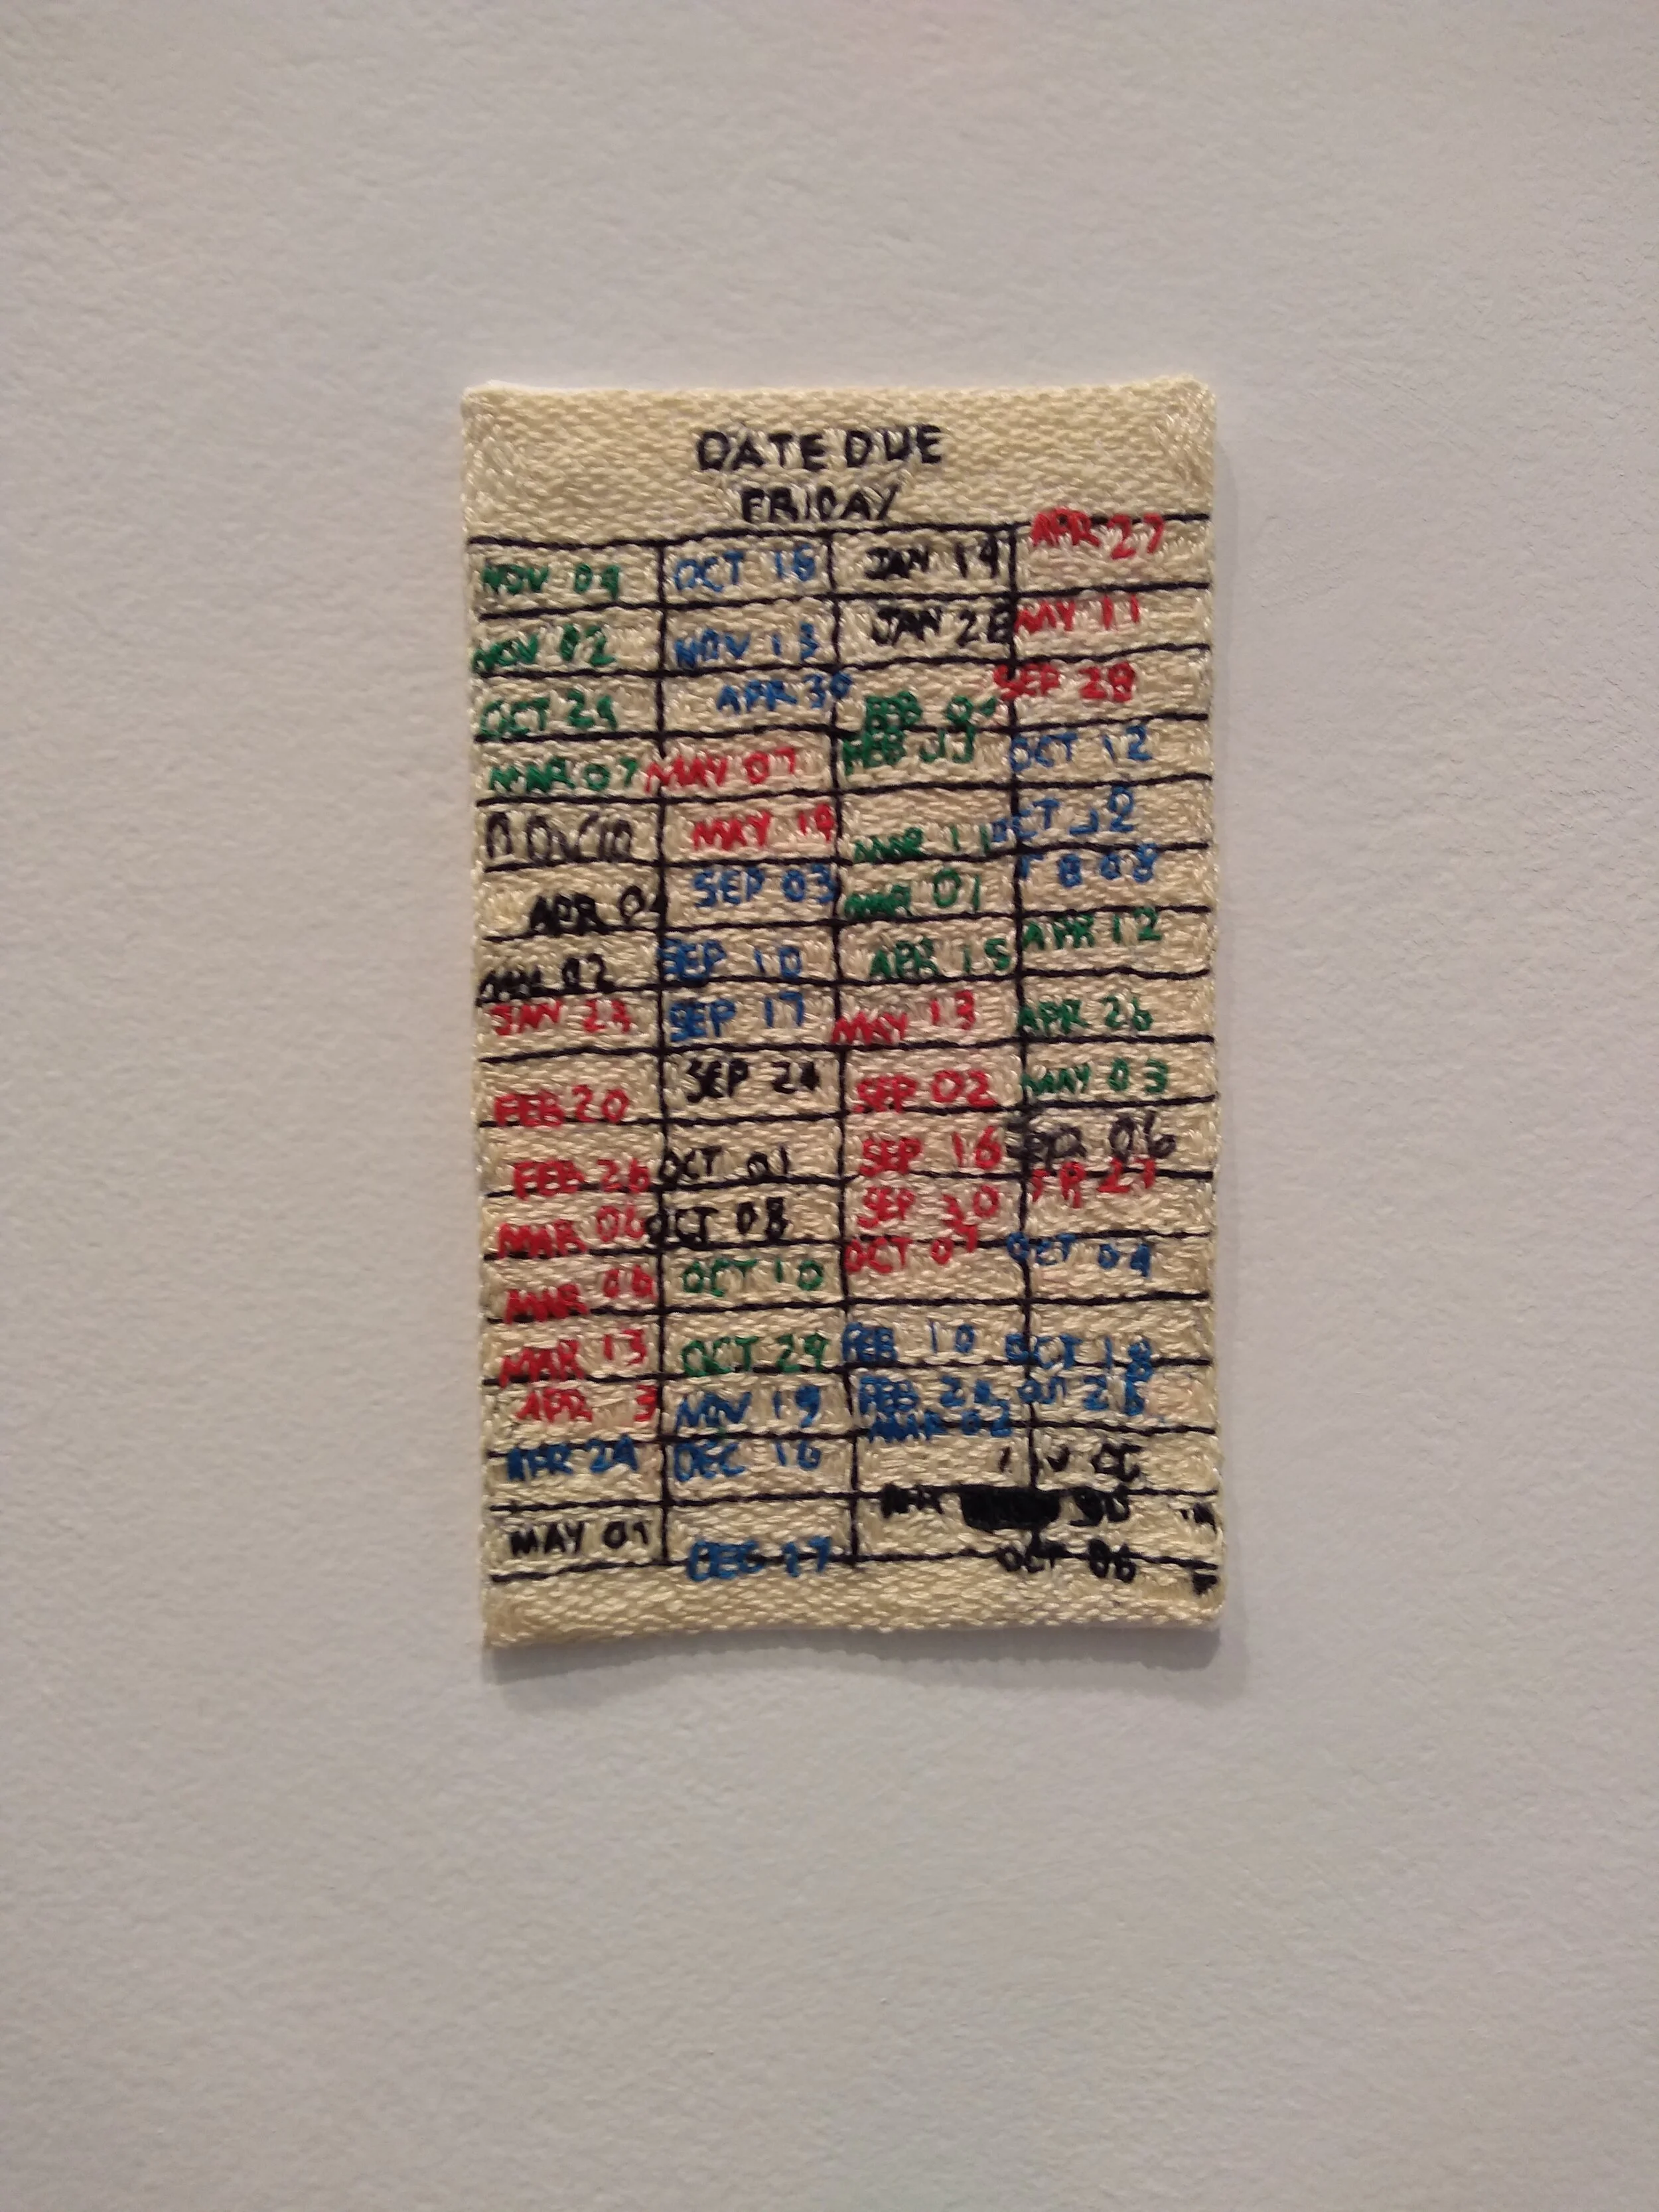 DATE DUE
FRIDAY
NOV 09 OCT 18 JAN 14 APR 27
NOV 02 NOV 13 JAN 28 MAY 11
OCT 24 APR 30 FEB SEP 28
MAR 07 MAY 07 FEB OCT 12
MAY 14 MAR 11 OCT 12
APR 04 SEP 03 MAR 01 08
02 SEP 10 APR 15 APR 12
JAN 23 SEP 17 MAY 13 APR 26
FEB 20 SEP 24 SEP 02 MAY 03
FEB 26 OCT 01 SEP 16 06
MAR 06 OCT 08 SEP 30 27
MAR 08 OCT 10 OCT 07 OCT 04
MAR 13 OCT 29 FEB 10 OCT 18
APR 3 NOV 19 FEB 24 26
MAR 02
APR 24 DEC 16
MAY 01 DEC 17 OCT 06